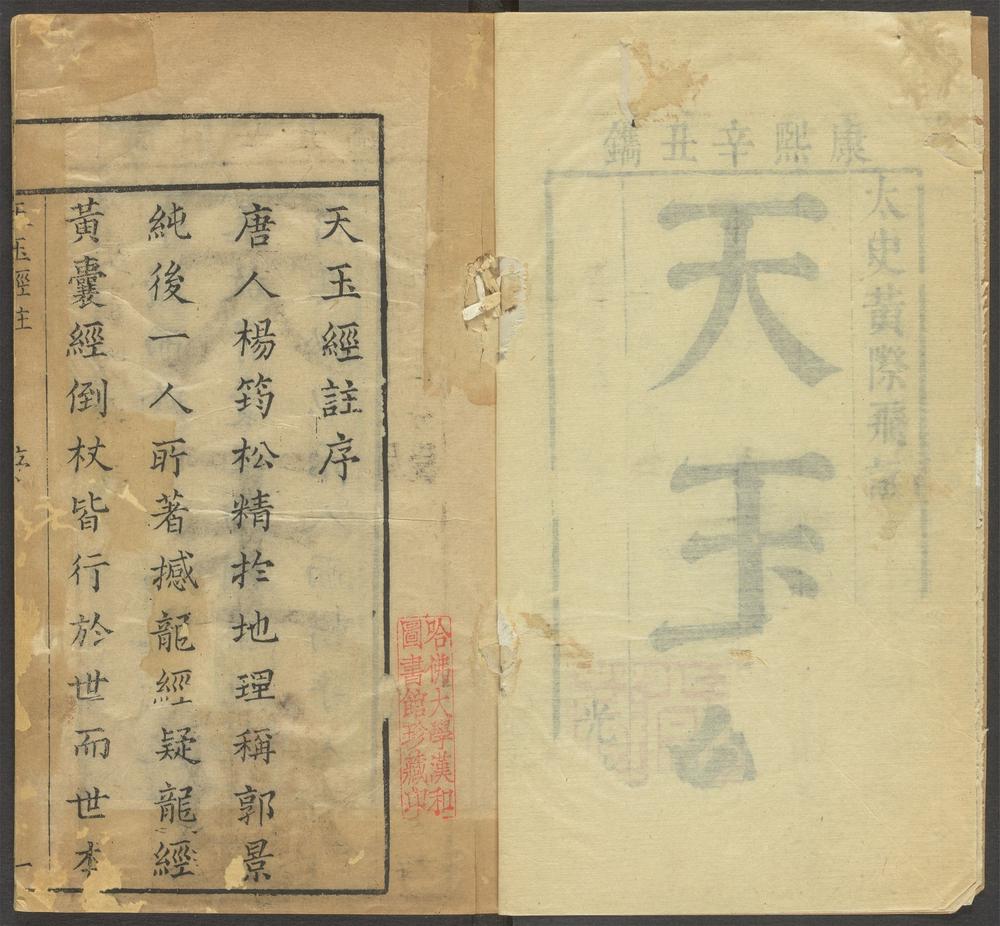 康熙辛丑鐫
太史黃際飛
天玉
光
天玉經註序
唐人楊筠松精於地理稱郭景
純後一人所著撼龍經疑龍經
黃囊經倒杖皆行於世而世本
玉經註
序
一
哈佛大學漢和
圖書館珍藏印